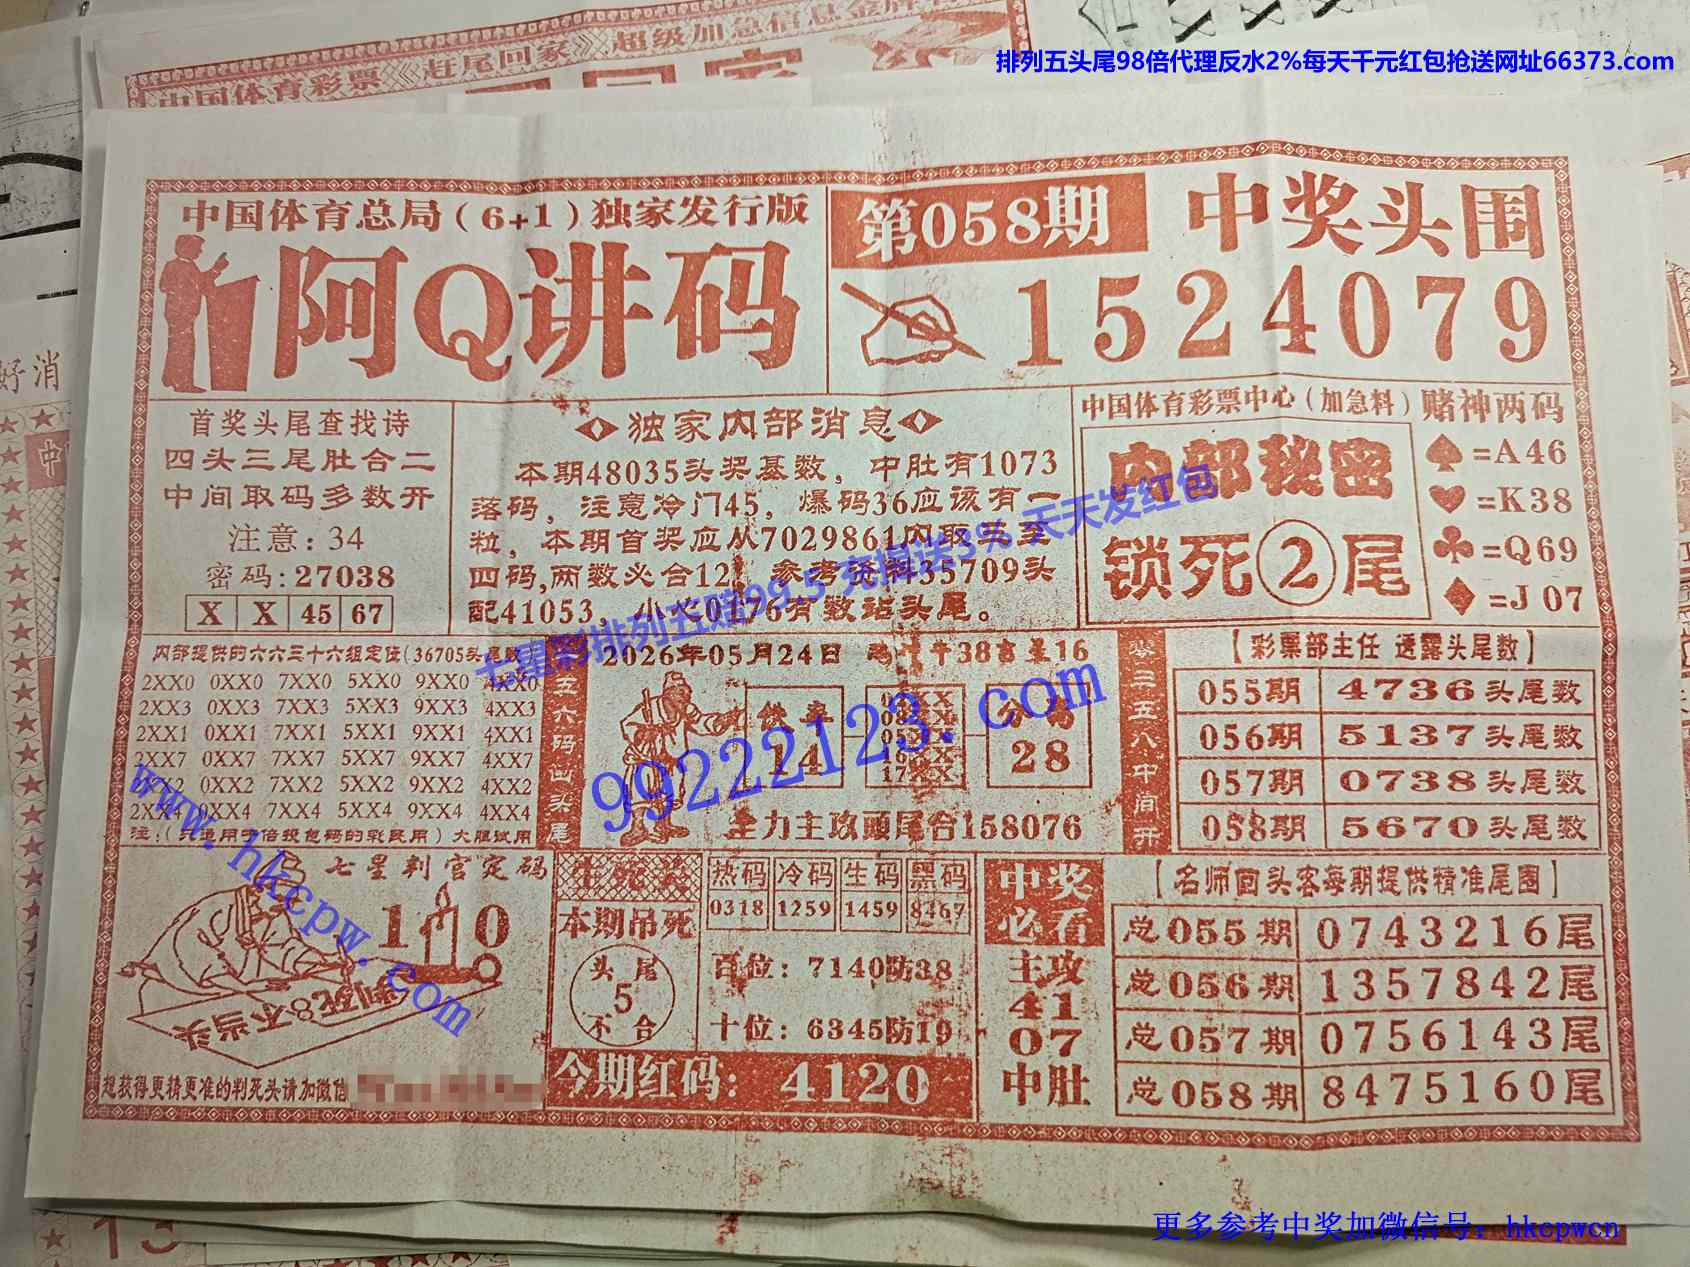 排列五头尾98倍代理反水2%每天千元红包抢送网址66373.com
中国体育彩票《赶尾回家》超级加急信息金牌
好消
中国体育总局(6+1)独家发行版
阿Q讲码
第058期
中奖头围
1524079
首奖头尾查找诗
四头三尾肚合二
中间取码多数开
注意:34
密码:27038
X X 45 67
独家内部消息
本期48035头奖基数,中肚有1073
落码,注意冷门45,爆码36应该有一
粒,本期首奖应从7029861内取三至
四码,两数必合12,参考资料35709头
配41053,小心0176有数站头尾。
中国体育彩票中心(加急料)
赌神两码
内部秘密
锁死②尾
♠=A46
♥=K38
♣=Q69
♦=J07
七星彩排列五赔99.5 充提送3% 天天发红包
内部提供的六六三十六组定位(36705头尾数)
2XX0 0XX0 7XX0 5XX0 9XX0 4XX0
2XX3 0XX3 7XX3 5XX3 9XX3 4XX3
2XX1 0XX1 7XX1 5XX1 9XX1 4XX1
2XX7 0XX7 7XX7 5XX7 9XX7 4XX7
2XX2 0XX2 7XX2 5XX2 9XX2 4XX2
2XX4 0XX4 7XX4 5XX4 9XX4 4XX4
注:(只适用于倍投包码的彩民用)大胆试用
五六码出头尾
2026年05月24日
38吉星16
14
28
全力主攻头尾合158076
99222123.com
零三五八中间开
【彩票部主任 透露头尾数】
055期 4736头尾数
056期 5137头尾数
057期 0738头尾数
058期 5670头尾数
www.hkcpw.com
七星判官定码
1 0
判死8不当头
想获得更精更准的判死头请加微信
生死奖
本期吊死
头尾
5
不合
热码 冷码 生码 黑码
0318 1259 1459 8467
百位:7140防38
十位:6345防19
今期红码:4120
中奖
必看
主攻
41
07
中肚
【名师回头客每期提供精准尾围】
总055期 0743216尾
总056期 1357842尾
总057期 0756143尾
总058期 8475160尾
更多参考中奖加微信号:hkcpwcn